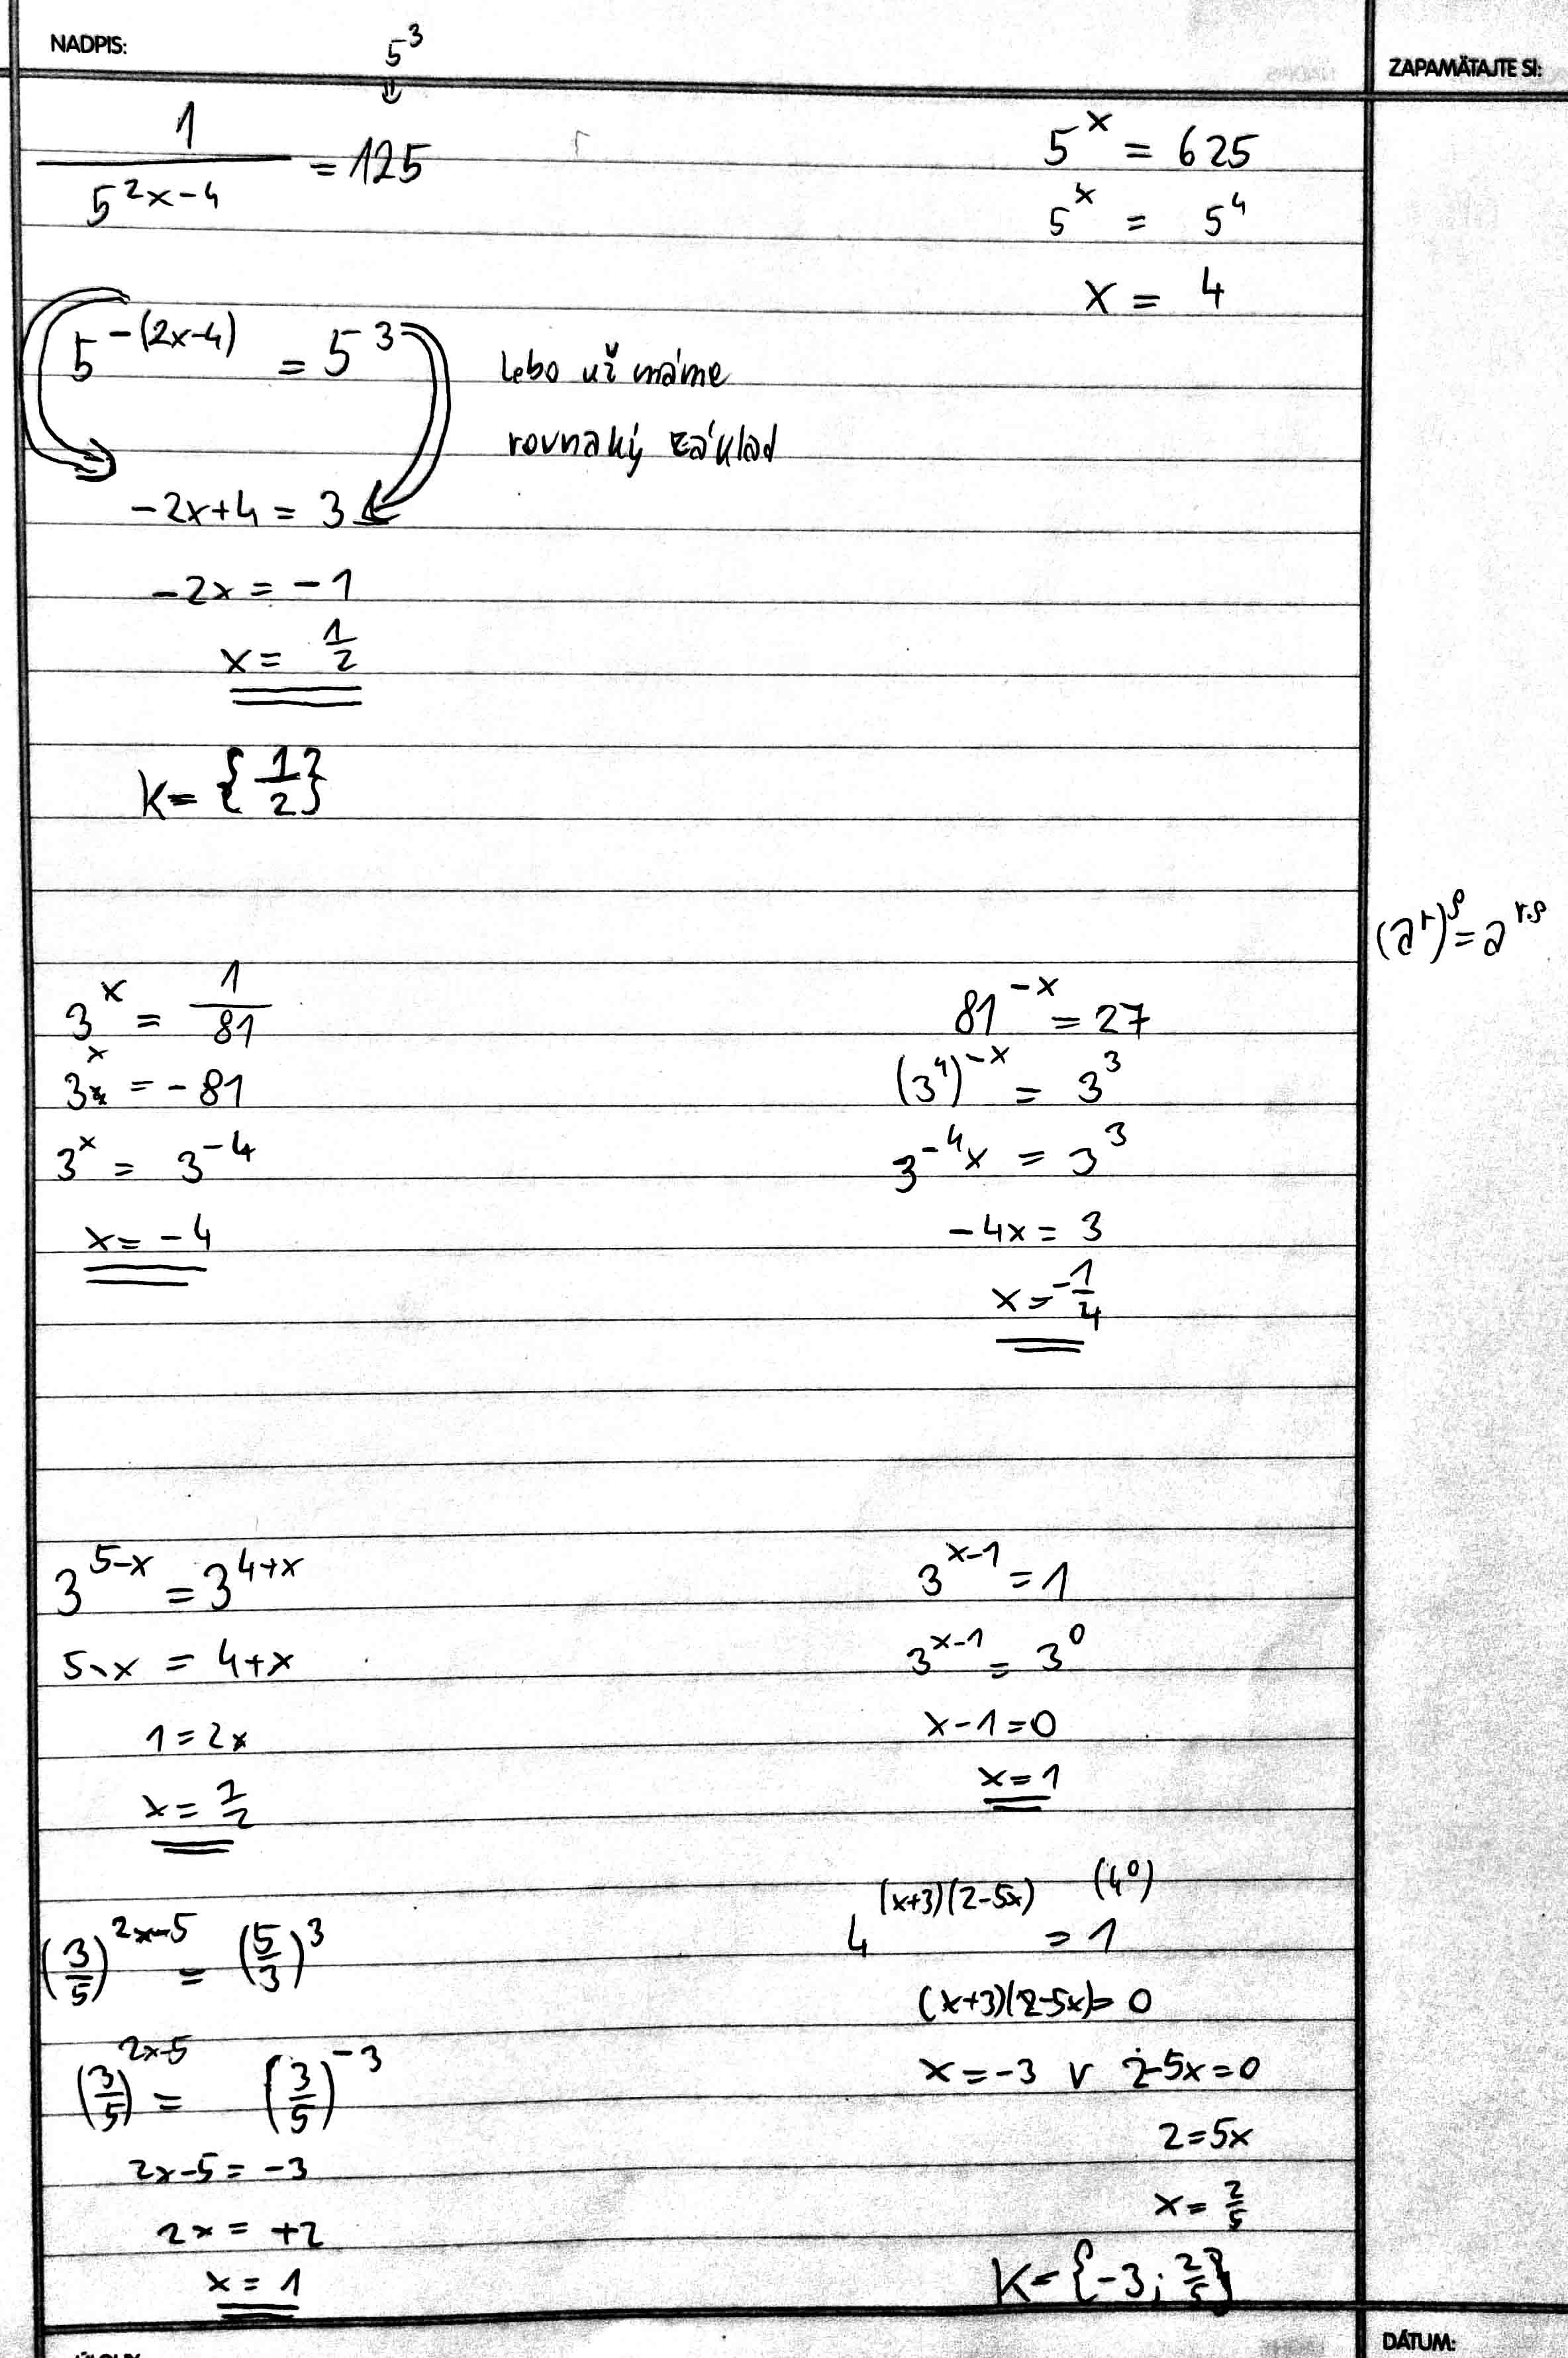 NADPIS:
ZAPAMÄTAJTE SI:
5³
⇓
1/5^(2x-4) = 125
5^x = 625
5^x = 5^4
x = 4
5^-(2x-4) = 5^3
lebo už máme
rovnaký základ
-2x+4 = 3
-2x = -1
x = 1/2
K = {1/2}
(a^r)^s = a^(r.s)
3^x = 1/81
3^x = -81
3^x = 3^-4
x = -4
81^-x = 27
(3^4)^-x = 3^3
3^-4x = 3^3
-4x = 3
x = -1/4
3^(5-x) = 3^(4+x)
5-x = 4+x
1 = 2x
x = 1/2
3^(x-1) = 1
3^(x-1) = 3^0
x-1 = 0
x = 1
(3/5)^(2x-5) = (5/3)^3
(3/5)^(2x-5) = (3/5)^-3
2x-5 = -3
2x = +2
x = 1
4^((x+3)(2-5x)) = 1 (4^0)
(x+3)(2-5x) = 0
x = -3 v 2-5x = 0
2 = 5x
x = 2/5
K = {-3; 2/5}
DÁTUM: